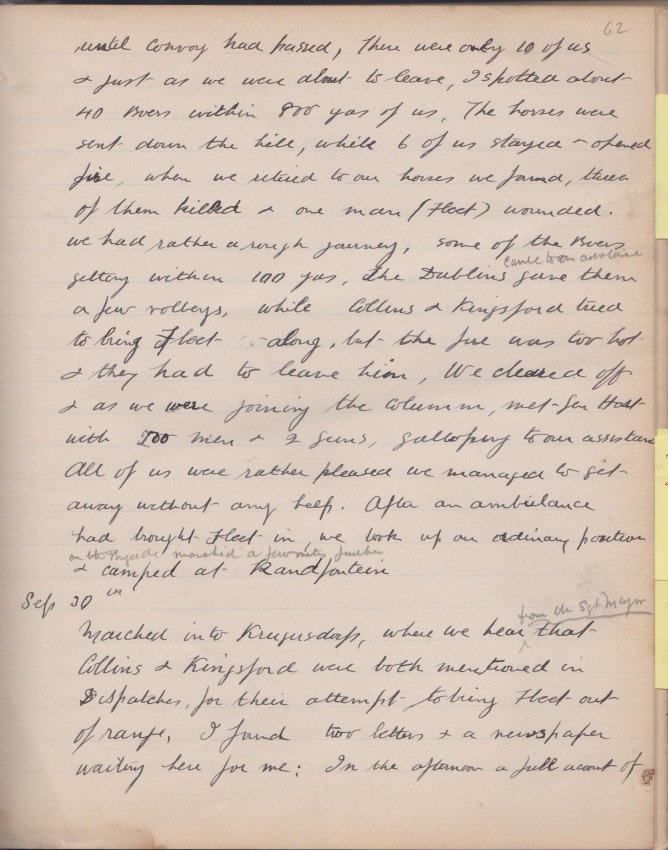 62
until convoy had passed, There were only 10 of us
& just as we were about to leave, I spotted about
40 Boers within 800 yds of us, The horses were
sent down the hill, while 6 of us stayed & opened
fire, when we retired to our horses we found, three
of them killed & one man (Fleet) wounded.
we had rather a rough journey, some of the Boers
came to our assistance
getting within 100 yds, The Dublins gave them
a few volleys, while Collins & Kingsford tried
to bring Fleet along, but the fire was too hot
& they had to leave him, We cleared off
& as we were joining the column, met Gen Hart
with 200 men & 2 guns, galloping to our assistance
All of us were rather pleased we managed to get
away without any help. After an ambulance
had brought Fleet in, we took up our ordinary position
marched a few miles further
& camped at Randfontein
Sep 30th
from the Sgt Major
Marched into Krugersdorp, where we hear that
Collins & Kingsford were both mentioned in
Dispatches, for their attempt to bring Fleet out
of range, I found two letters & a newspaper
waiting here for me: In the afternoon a full acount of